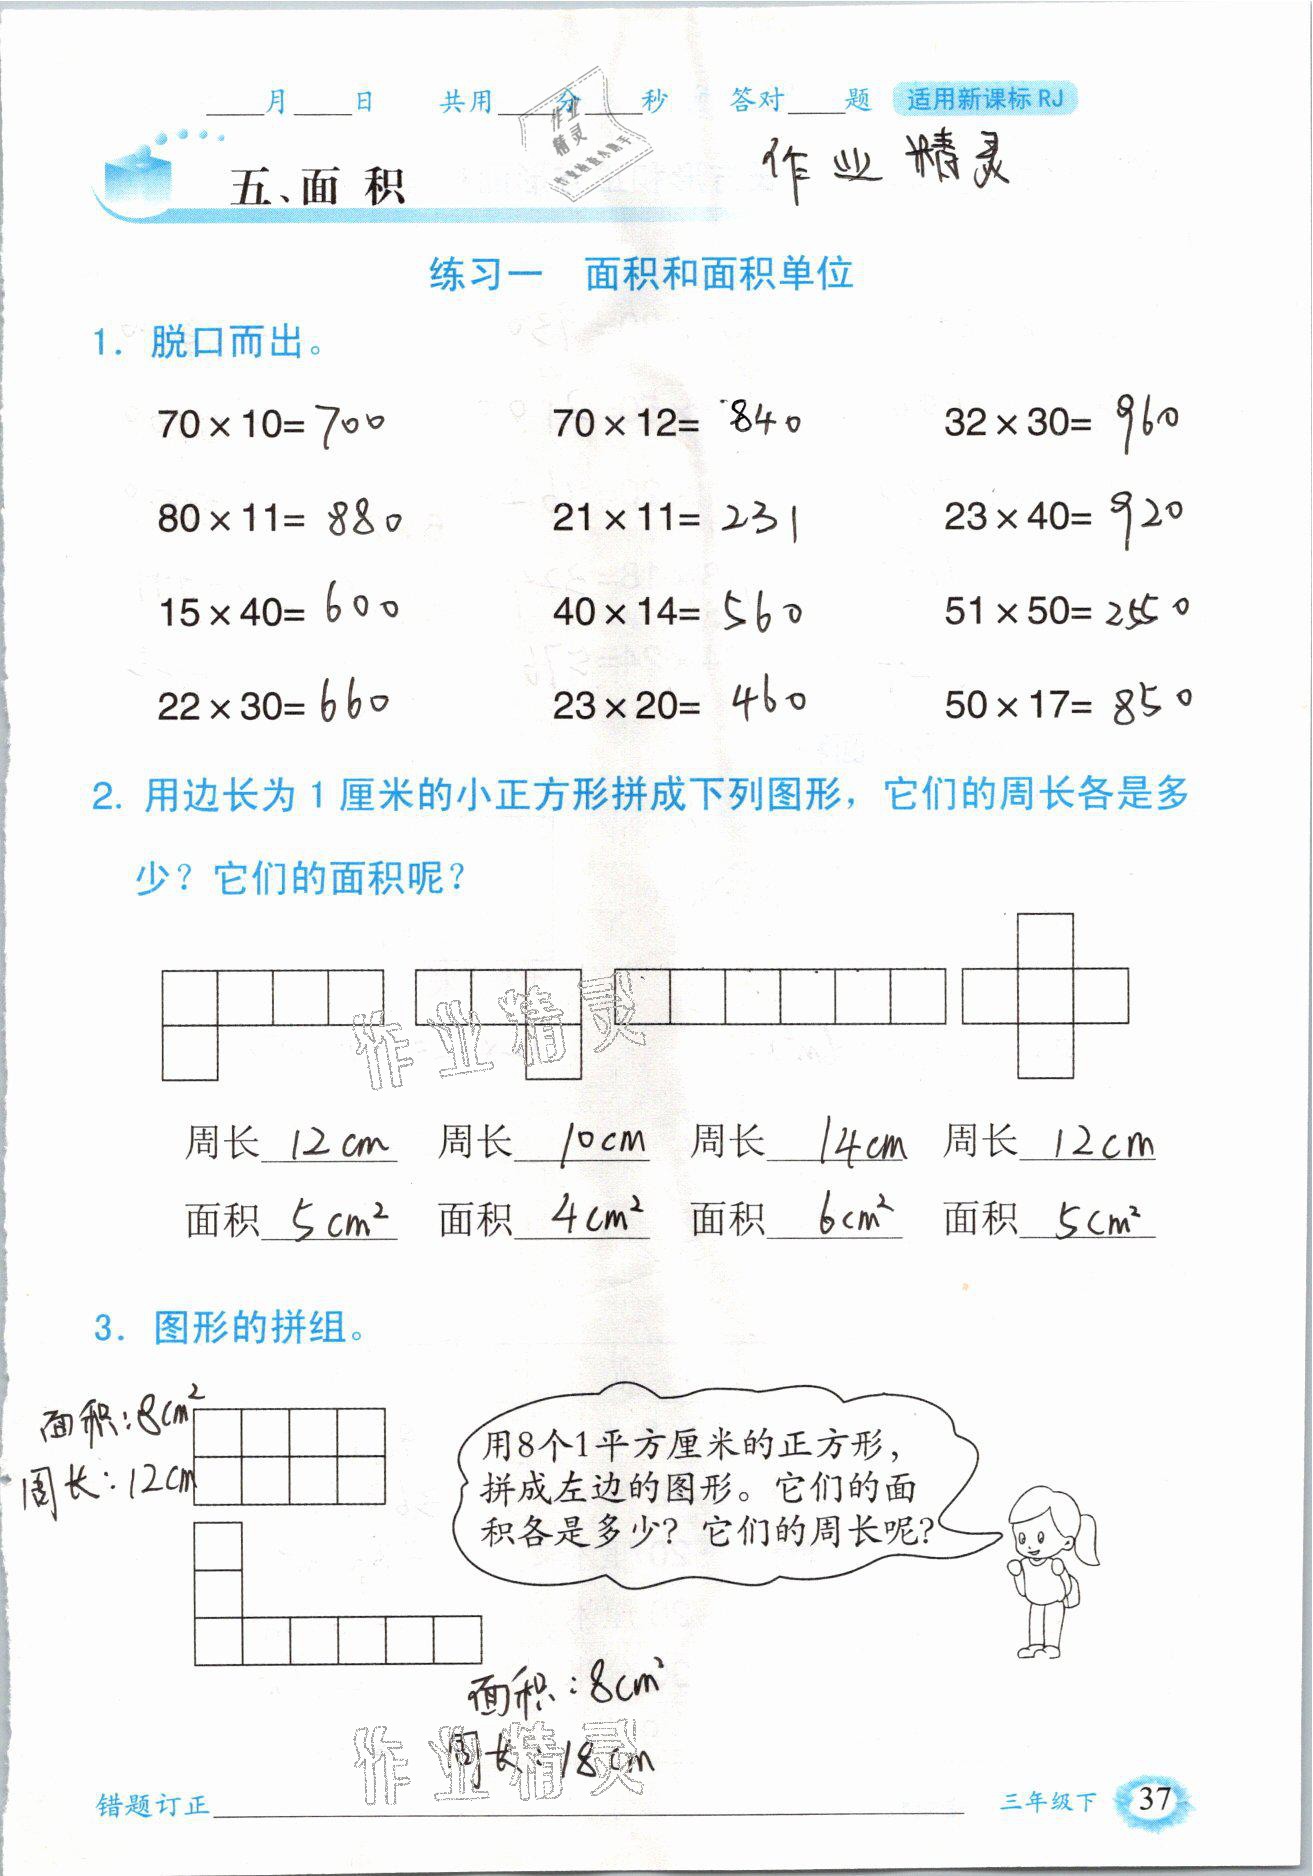 ____月____日 共用____分____秒 答对____题 适用新课标 RJ
作业精灵
五、面 积
作业 精灵
练习一 面积和面积单位
1. 脱口而出。
70×10=700 70×12=840 32×30=960
80×11=880 21×11=231 23×40=920
15×40=600 40×14=560 51×50=2550
22×30=660 23×20=460 50×17=850
2. 用边长为 1 厘米的小正方形拼成下列图形，它们的周长各是多
少？它们的面积呢？
作业精灵
周长 12cm 周长 10cm 周长 14cm 周长 12cm
面积 5cm² 面积 4cm² 面积 6cm² 面积 5cm²
3. 图形的拼组。
面积：8cm²
周长：12cm
用8个1平方厘米的正方形，
拼成左边的图形。它们的面
积各是多少？它们的周长呢？
面积：8cm²
周长：18cm
作业精灵
错题订正
三年级下 37